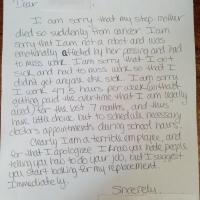 Dear
I am sorry that my step mother
died so suddenly from cancer. I am
sorry that I am not a robot and was
emotionally affected by her passing and had
to miss work. I am sorry that I got
sick and had to miss work so that I
didn't get anyone else sick. I am sorry
I work 47.5 hours per week (without
getting paid the overtime that I am legally
owed) for the last 7 months, and thus
have little choice but to schedule necessary
doctors appointments during school hours.
Clearly I am a terrible employee, and
for that I apologize. I know you hate people
telling you how to do your job, but I suggest
you start looking for my replacement.
Immediately.
Sincerely,